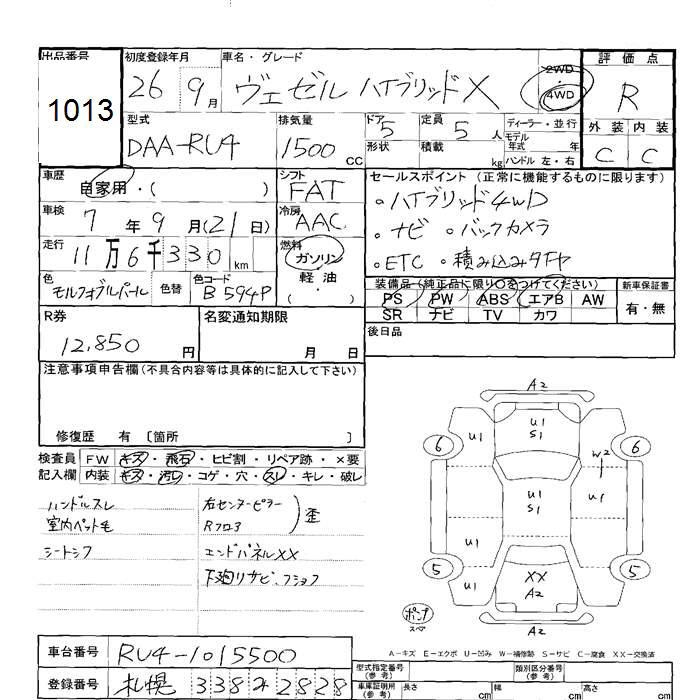 出品番号 初度登録年月 車名・グレード 評価点
1013 26 9月 ヴェゼル ハイブリッドX 2WD・4WD R
型式 排気量 ドア 定員 ディーラー・並行 外装 内装
DAA-RU4 1500cc 5 5人 モデル年式 年 C C
形状 積載 kg ハンドル 左・右
車歴 シフト セールスポイント (正常に機能するものに限ります)
自家用・( ) FAT
車検 7年9月(21日) 冷房 AAC
走行 11万6千330km 燃料 ガソリン 軽油 (・)
。ハイブリッド4WD
。ナビ 。バックカメラ
。ETC 。積み込みタイヤ
色 モルフォブルーパール 色替 色コード B594P
装備品(純正品に限り○をつけてください) 新車保証書
PS PW ABS エアB AW 有・無
SR ナビ TV カワ
R券 名変通知期限 後日品
12,850円 月 日
注意事項申告欄(不具合内容等は具体的に記入して下さい)
修復歴 有 〔箇所 〕
検査員 FW キズ・飛石・ヒビ割・リペア跡・×要
記入欄 内装 キズ・汚レ・コゲ・穴・スレ・キレ・破レ
ハンドルスレ 右センターピラー
室内ペット毛 Rフロア )歪
シートシワ エンドパネルXX
下廻りサビ、フショク
A2
U1 U1 S1
6 6
W2
U1 S1 U1
U1
5 5
U1 XX A2
ポンプ スペア A2
A-キズ E-エクボ U-凹み W-補修跡 S-サビ C-腐食 XX-交換済
車台番号 RU4-1015500 型式指定番号(参考) 類別区分番号(参考)
登録番号 札幌 338 ス 2828 車庫証明用(参考) 長さ cm 幅 cm 高さ cm